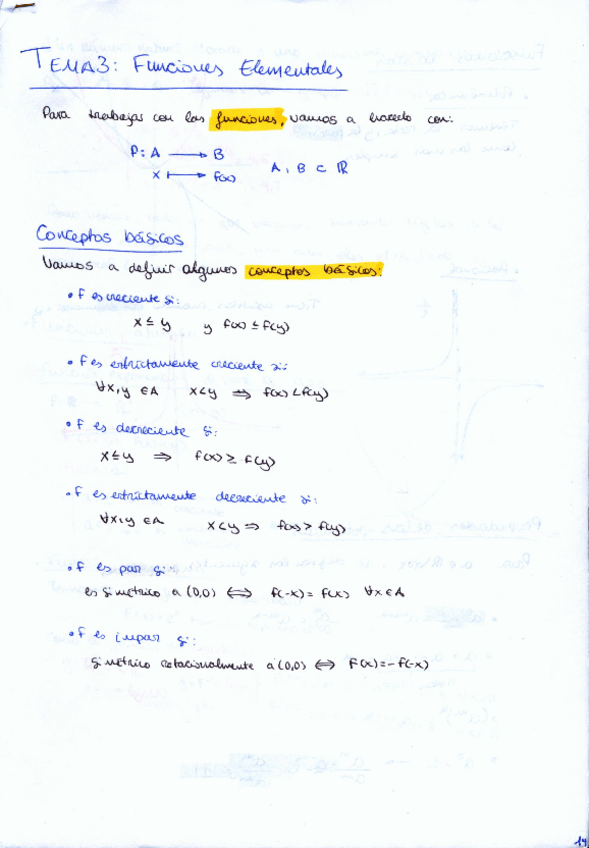 TEMA 3: Funciones Elementales
Para trabajar con las funciones, vamos a hacerlo con:
f: A ⟶ B
x ⟼ f(x)   A, B ⊂ ℝ
Conceptos básicos
Vamos a definir algunos conceptos básicos:
• f es creciente si:
x ≤ y   y   f(x) ≤ f(y)
• f es estrictamente creciente si:
∀x, y ∈ A   x < y ⟹ f(x) < f(y)
• f es decreciente si:
x ≤ y ⟹ f(x) ≥ f(y)
• f es estrictamente decreciente si:
∀x, y ∈ A   x < y ⟹ f(x) > f(y)
• f es par si:
es simétrico a (0,0) ⟺ f(-x) = f(x) ∀x ∈ A
• f es impar si:
simétrico rotacionalmente a (0,0) ⟺ f(x) = -f(-x)
14